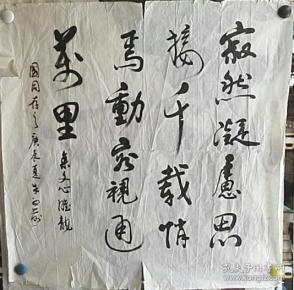 寂然凝慮思
接千載悄
焉動容視通
萬里
集文心雕龍
國同存之庚辰夏朱正
孔夫子旧书网